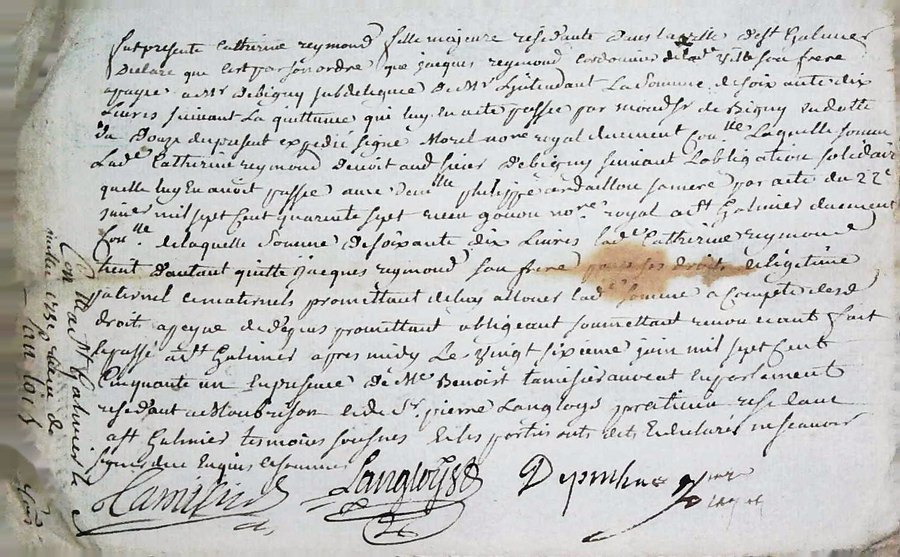 fut presente Catherine reymond fille majeure residante dans la ville de st Galmier
Declare que c'est par son ordre que jacques reymond cordonnier de lad. ville son frere
a payé a Mr Debigny subdelegué de Mr L'jntendant La somme de soixante dix
Livres suivant La quittance qui luy en a ete passée par mond. sr de Bigny en datte
du Douze du present expedié signé Morel nore royal duement Conlle Laquelle somme
Lad.e Catherine reymond devoit aud. sieur Debigny suivant L'obligation solidaire
quelle luy en avoit passée avec Demlle philippe sa mere par acte du 22e
janvier mil sept Cent quarente sept receu nore royal a st Galmier duement
Conlle de laquelle somme de soixante dix Livres lad.e Catherine reymond
tient d'autant quitte jacques reymond son frere pour ses droits de Legitime
paternel et maternels promettant de luy allouer lad.e somme a Compte desd.
droits a peyne de d'epens promettant obligeant soumettant renonceant fait
et passé a st Galmier apres midy Le vingt sixieme juin mil sept Cent
Cinquante un En presence de Me Benoist tamisier avocat en parlement
residant a Montbrison et de Sr pierre Langloys praticien residant
a st Galmier temoins sousnés et les parties ont dit et declaré ne scavoir
signer de ce Enquis et sommés
Tamisier
Langloys
Conlle a st Galmier le
juillet 1751 receu